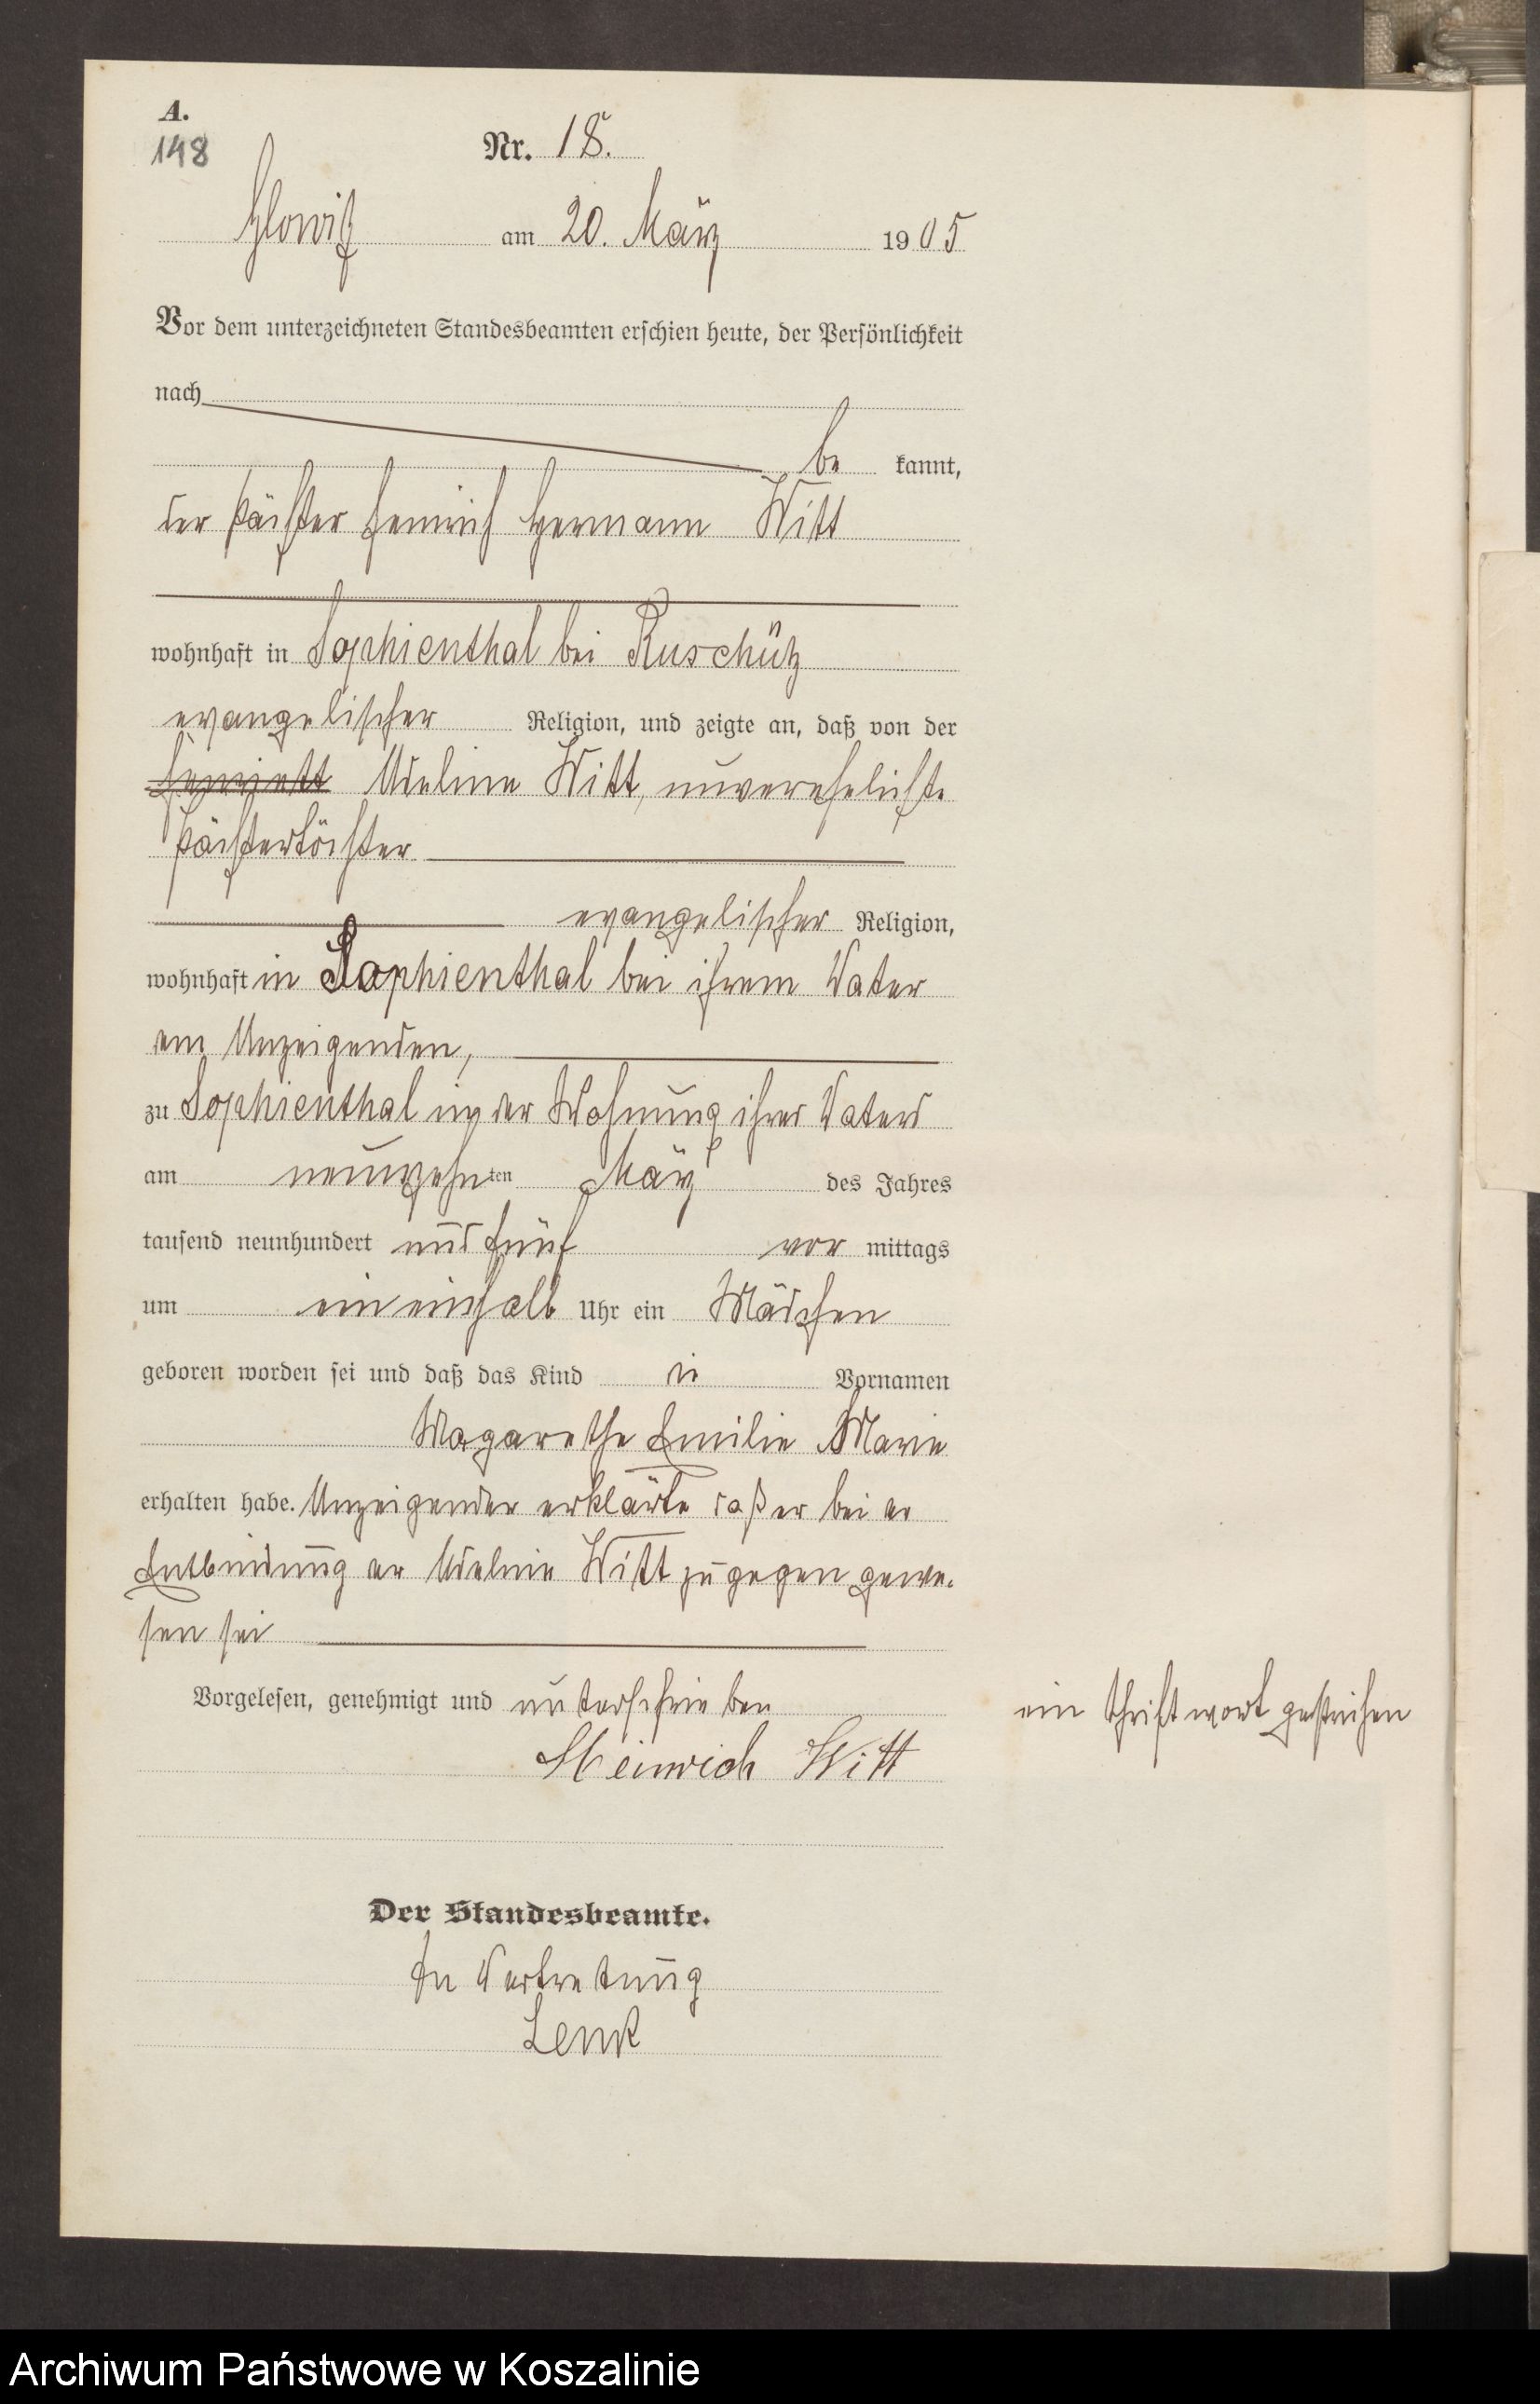 A.
148
Nr. 18.
Glowitz am 20. März 1905
Vor dem unterzeichneten Standesbeamten erschien heute, der Persönlichkeit
nach
be kannt,
der Pächter Heinrich Hermann Witt
wohnhaft in Sophienthal bei Ruschütz
evangelischer Religion, und zeigte an, daß von der
Adeline Witt, unverehelichte
Pächtertochter
evangelischer Religion,
wohnhaft in Sophienthal bei ihrem Vater
dem Anzeigenden,
zu Sophienthal in der Wohnung ihres Vaters
am neunzehnten März des Jahres
tausend neunhundert und fünf vor mittags
um ein einhalb Uhr ein Mädchen
geboren worden sei und daß das Kind die Vornamen
Magarethe Emilie Marie
erhalten habe. Anzeigender erklärte daß er bei der
Entbindung der Adeline Witt zugegen gewe-
sen sei
Vorgelesen, genehmigt und unterschrieben
Heinrich Witt
ein Schriftwort gestrichen
Der Standesbeamte.
In Vertretung
Lenk
Archiwum Państwowe w Koszalinie